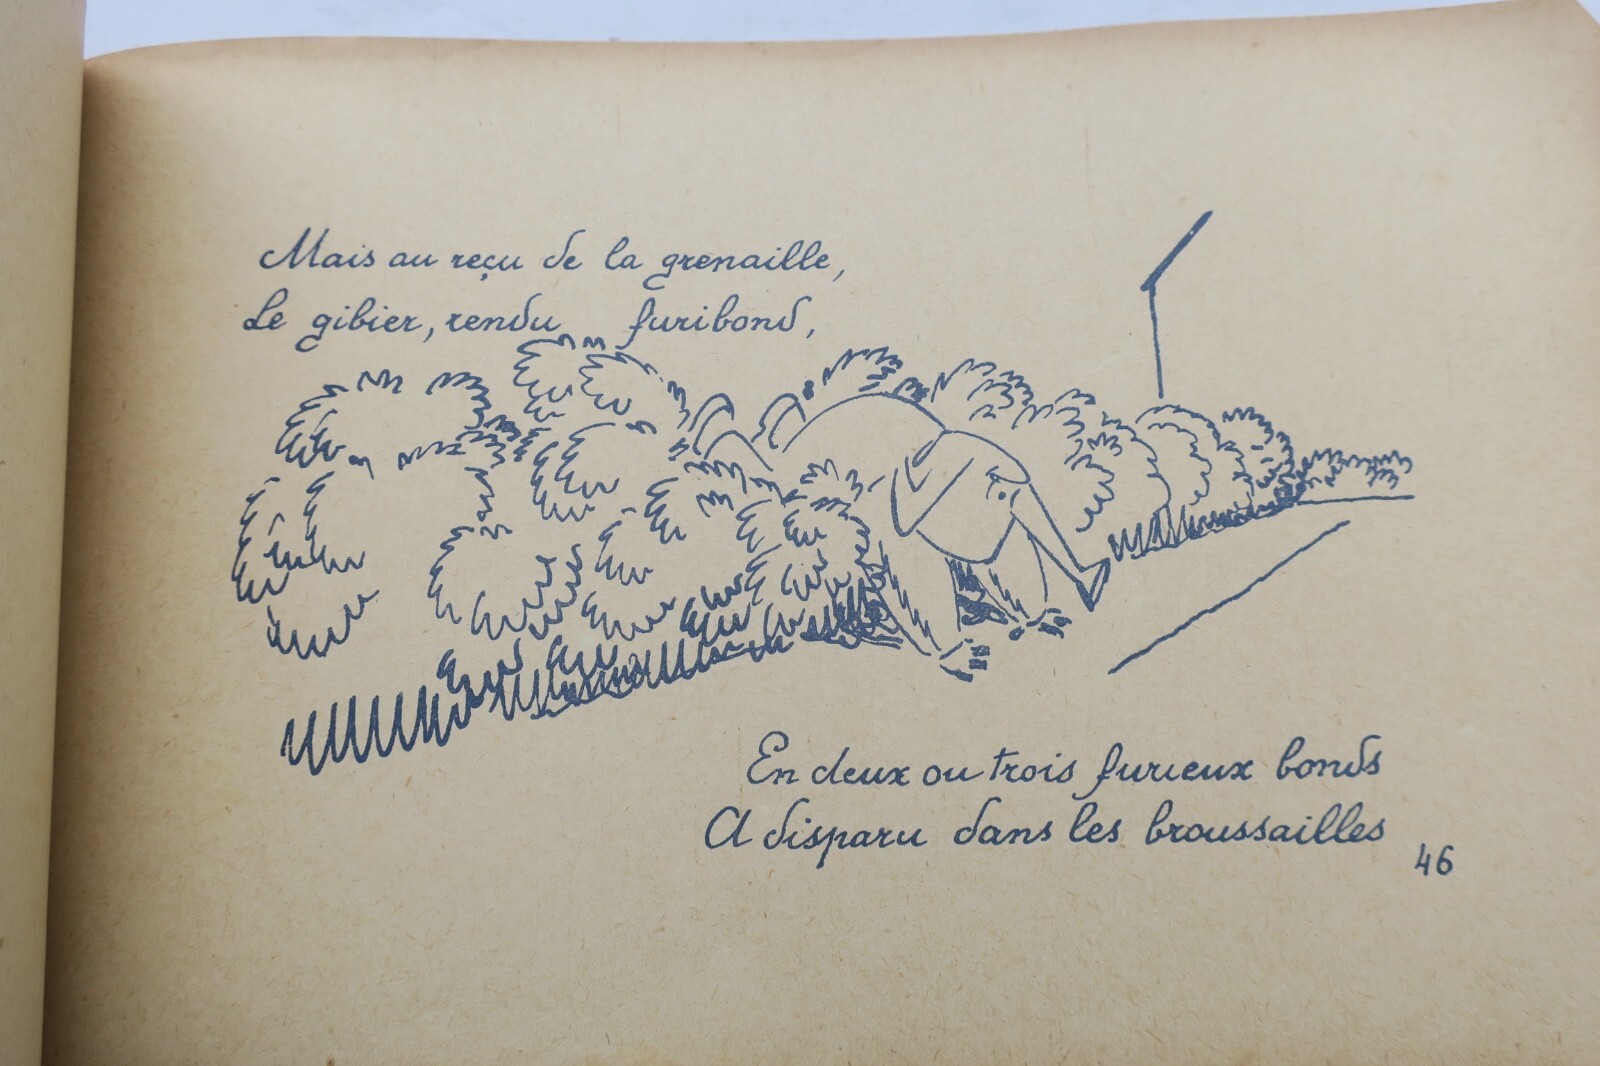 Mais au reçu de la grenaille,
Le gibier, rendu furibond,
En deux ou trois furieux bonds
A disparu dans les broussailles
46